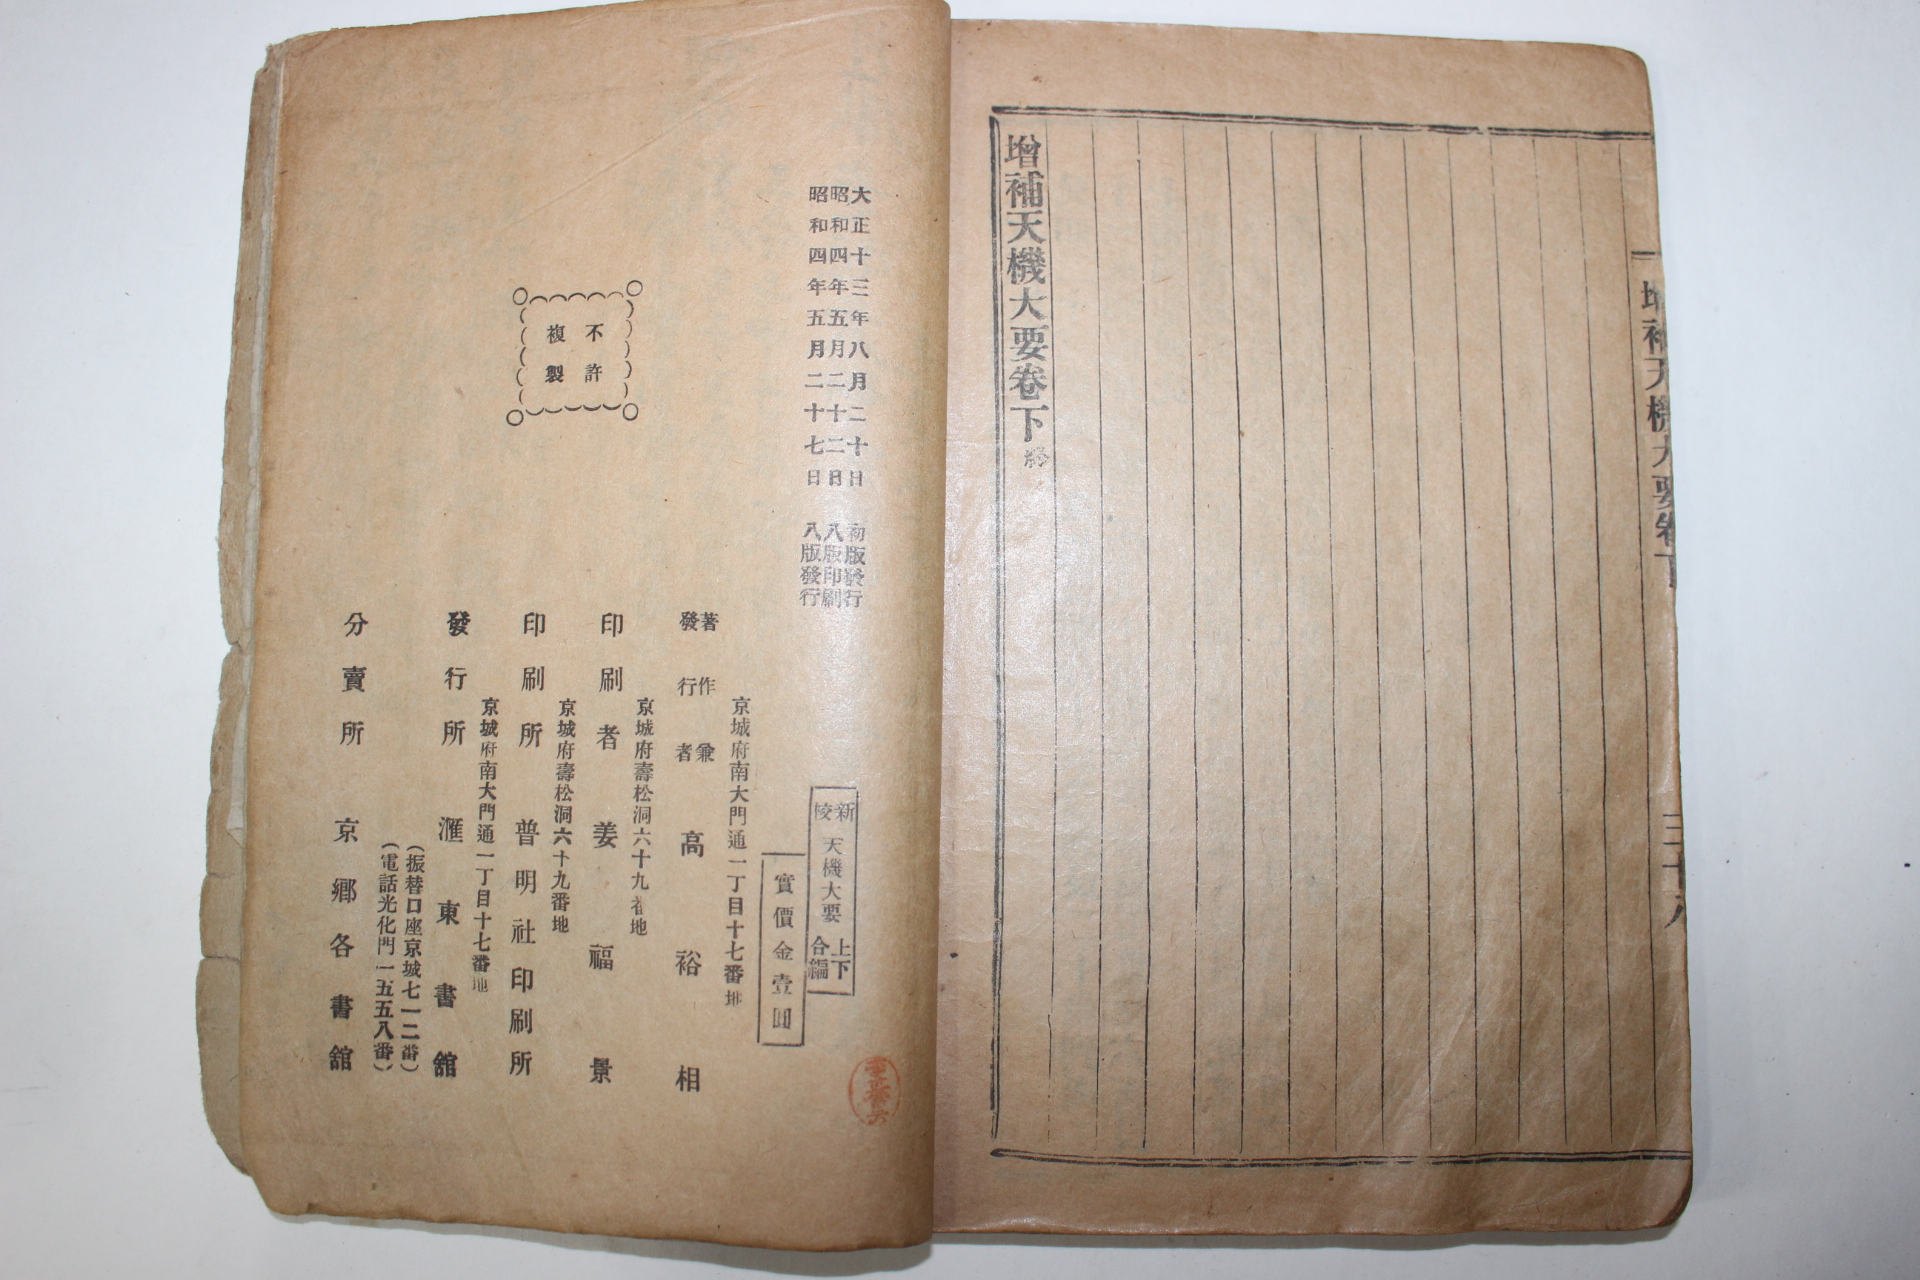 增補天機大要卷下
三十八
增補天機大要卷下 終
大正十三年八月二十日 初版發行
昭和四年五月二十二日 八版印刷
昭和四年五月二十七日 八版發行
不許
複製
新
天機大要 上下合編
實價金壹圓
京城府南大門通一丁目十七番地
著作兼發行者 高裕相
京城府壽松洞六十九番地
印刷者 姜福景
京城府壽松洞六十九番地
印刷所 普明社印刷所
京城府南大門通一丁目十七番地
發行所 滙東書舘
(振替口座京城七一二番)
(電話光化門一五五八番)
分賣所 京鄉各書舘